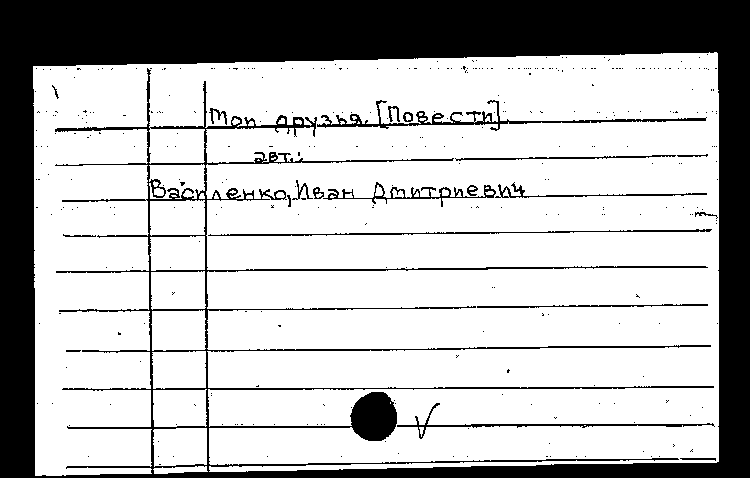 Мои друзья. [Повести].
авт.:
Василенко, Иван Дмитриевич